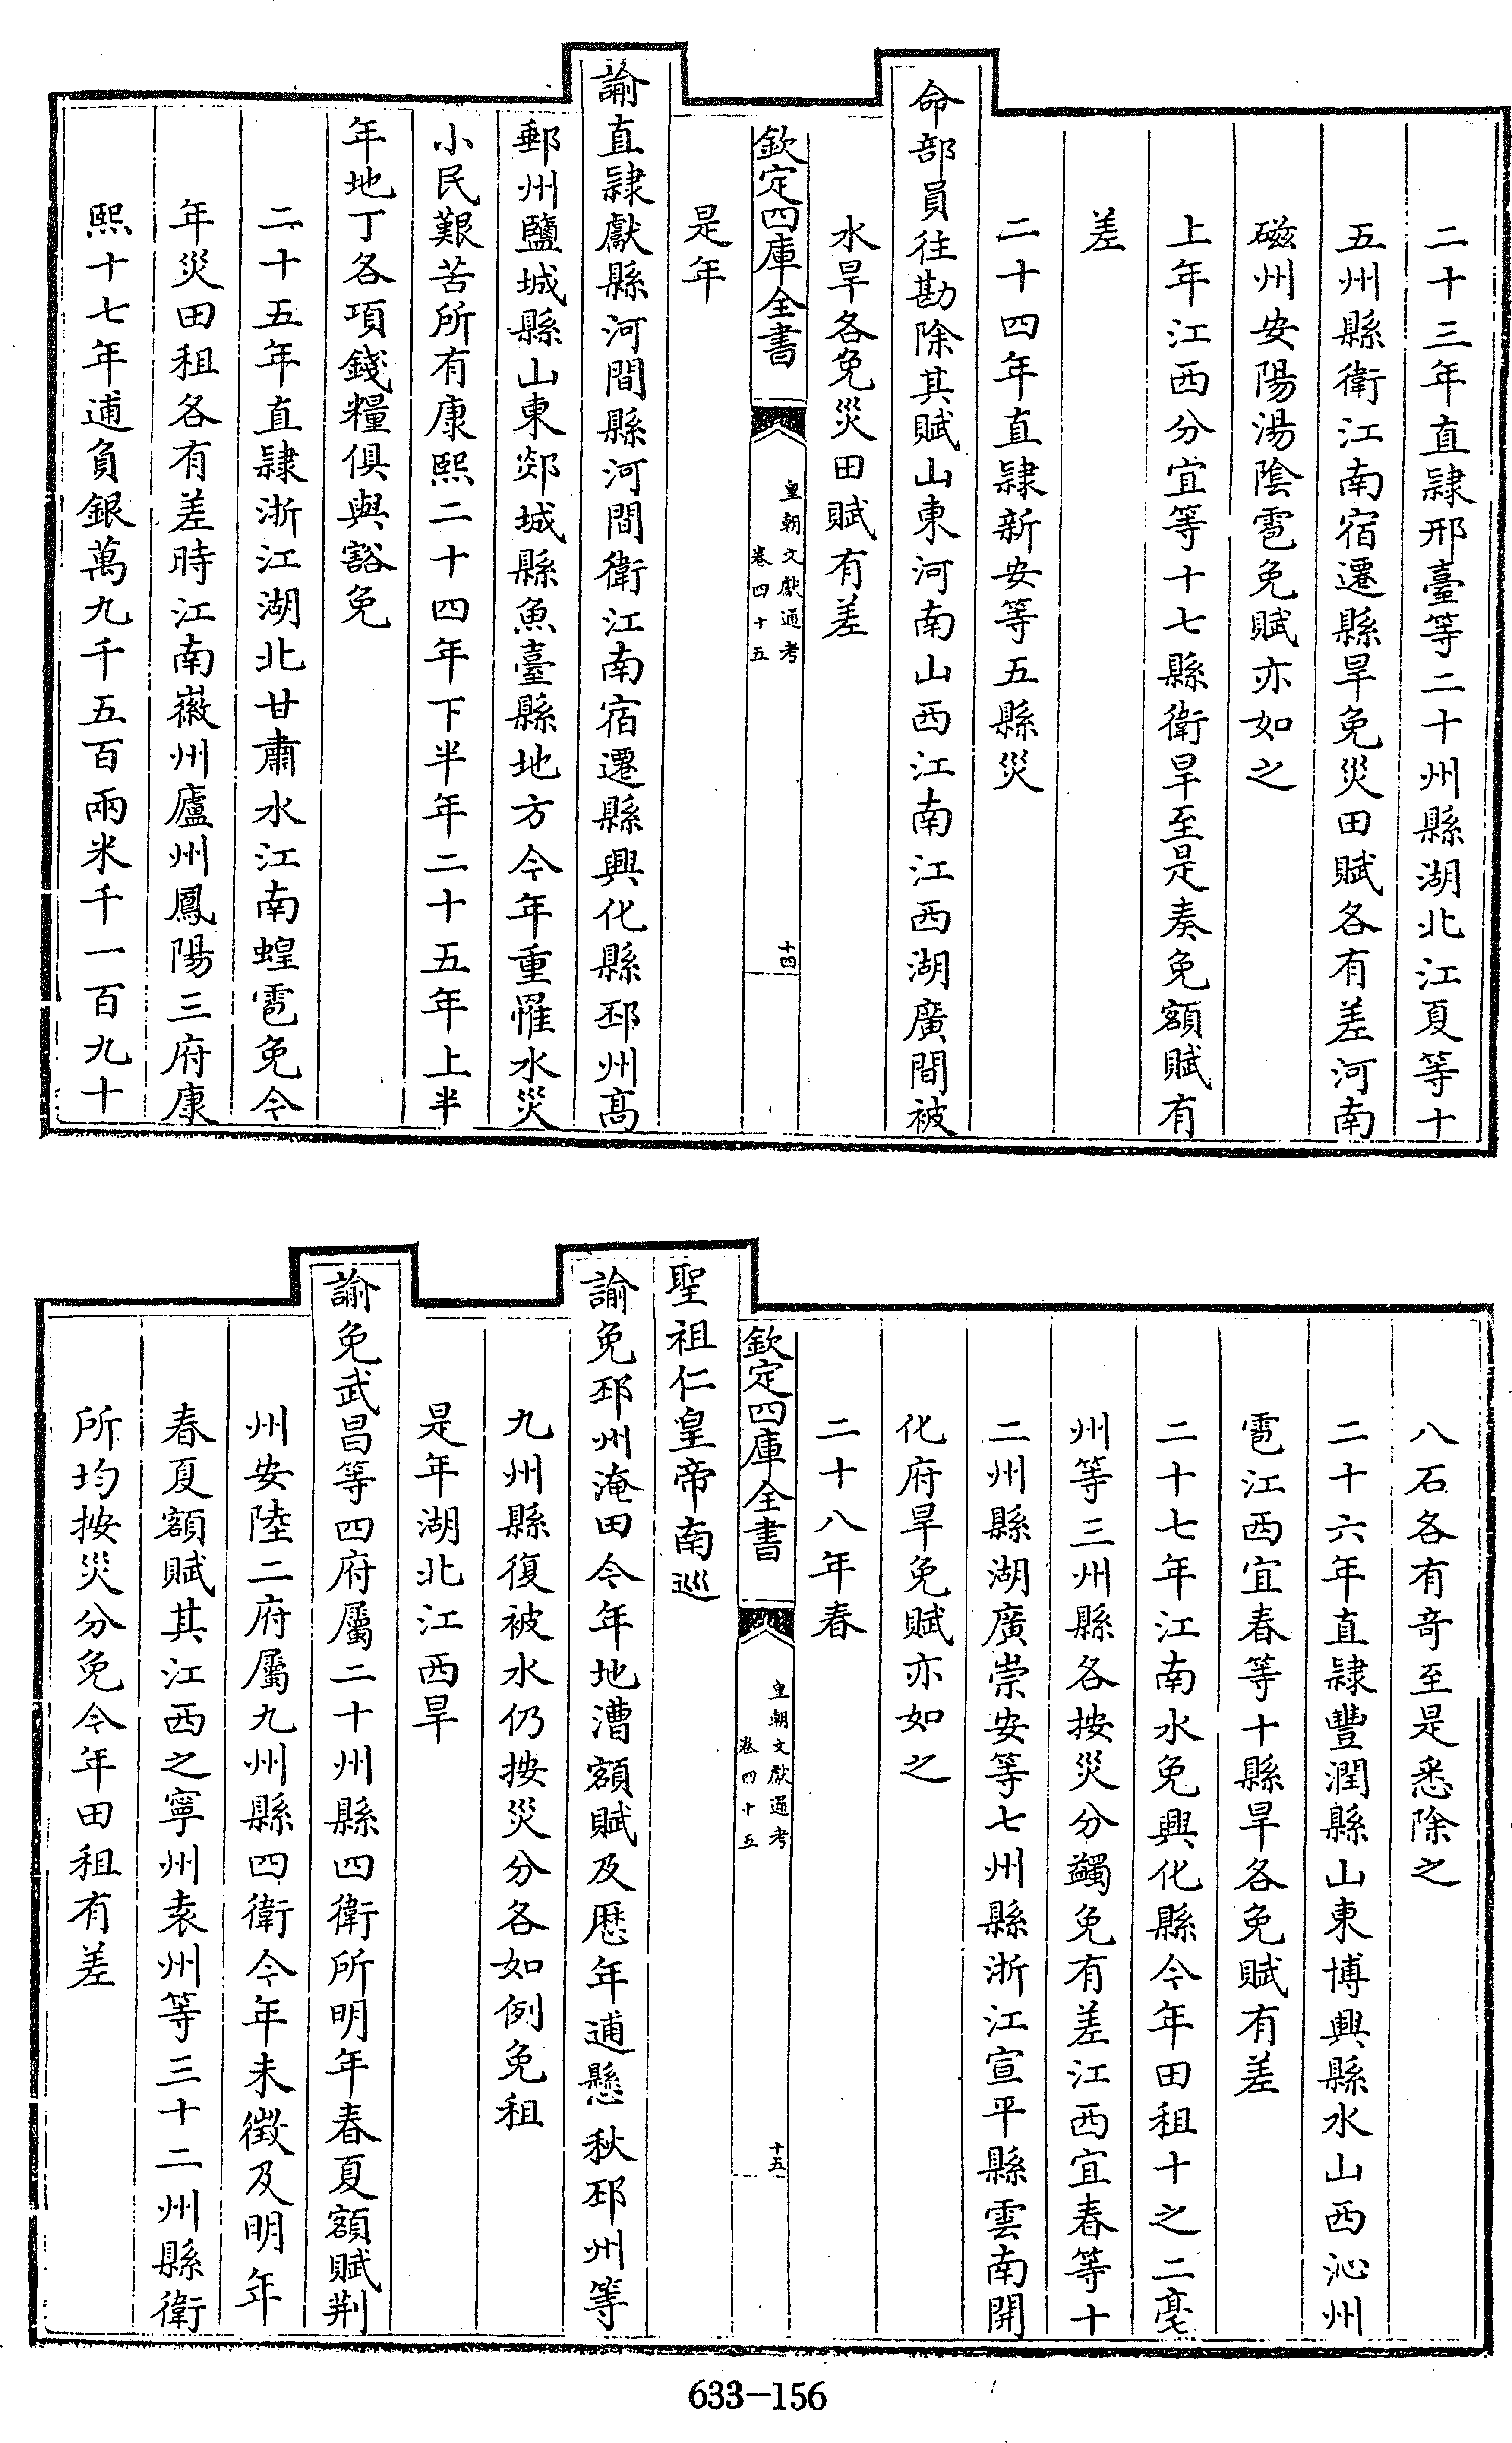 二十三年直隸邢臺等二十州縣湖北江夏等十
五州縣衛江南宿遷縣旱免災田賦各有差河南
磁州安陽湯陰雹免賦亦如之
上年江西分宜等十七縣衛旱至是奏免額賦有
差
二十四年直隸新安等五縣災
命部員往勘除其賦山東河南山西江南江西湖廣間被
水旱各免災田賦有差
欽定四庫全書
皇朝文獻通考
卷四十五
十四
是年
諭直隸獻縣河間縣河間衛江南宿遷縣興化縣邳州高
郵州鹽城縣山東郯城縣魚臺縣地方今年重罹水災
小民艱苦所有康熙二十四年下半年二十五年上半
年地丁各項錢糧俱與豁免
二十五年直隸浙江湖北甘肅水江南蝗雹免今
年災田租各有差時江南徽州廬州鳳陽三府康
熙十七年逋負銀萬九千五百兩米千一百九十
八石各有奇至是悉除之
二十六年直隸豐潤縣山東博興縣水山西沁州
雹江西宜春等十縣旱各免賦有差
二十七年江南水免興化縣今年田租十之二亳
州等三州縣各按災分蠲免有差江西宜春等十
二州縣湖廣崇安等七州縣浙江宣平縣雲南開
化府旱免賦亦如之
二十八年春
欽定四庫全書
皇朝文獻通考
卷四十五
十五
聖祖仁皇帝南巡
諭免邳州淹田今年地漕額賦及歷年逋懸秋邳州等
九州縣復被水仍按災分各如例免租
是年湖北江西旱
諭免武昌等四府屬二十州縣四衛所明年春夏額賦荆
州安陸二府屬九州縣四衛今年未徵及明年
春夏額賦其江西之寧州袁州等三十二州縣衛
所均按災分免今年田租有差
633-156